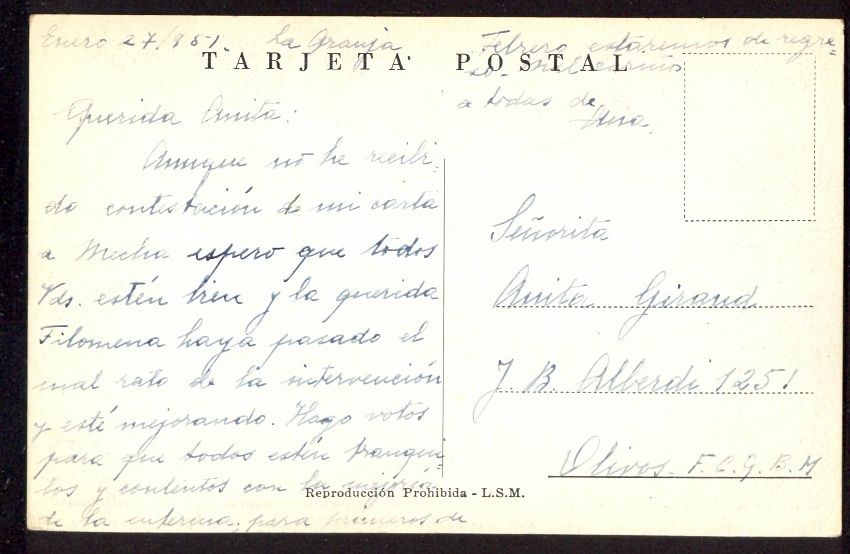 Enero 27/951. La Granja
TARJETA POSTAL
Querida Anita:
Aunque no he recibi-
do contestación de mi carta
a Mecha espero que todos
Vds. estén bien y la querida
Filomena haya pasado el
mal rato de la intervención
y esté mejorando. Hago votos
para que todos estén tranqui-
los y contentos con la mejoría
de la enferma. para primeros de
Febrero estaremos de regre-
so. Mil cariños
a todas de
Ana.
Señorita
Anita Giraud
J. B. Alberdi 1251
Olivos. F.C.G.B.M
Reproducción Prohibida - L.S.M.